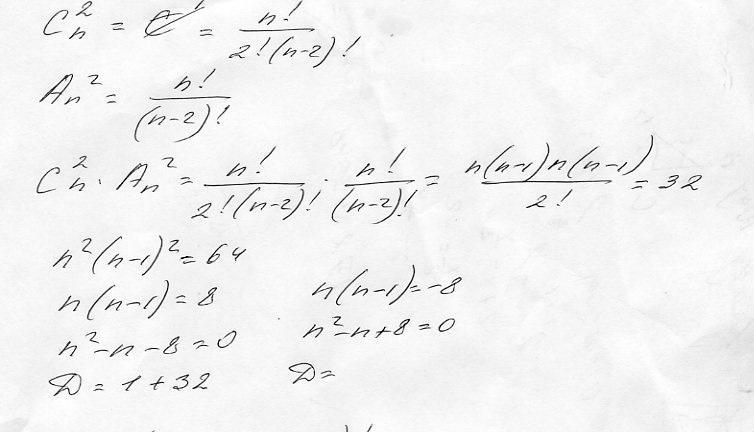 C_n^2 = = n! / 2!(n-2)!
A_n^2 = n! / (n-2)!
C_n^2 · A_n^2 = n! / 2!(n-2)! · n! / (n-2)! = n(n-1)n(n-1) / 2! = 32
n^2(n-1)^2 = 64
n(n-1) = 8 n(n-1) = -8
n^2 - n - 8 = 0 n^2 - n + 8 = 0
D = 1 + 32 D =